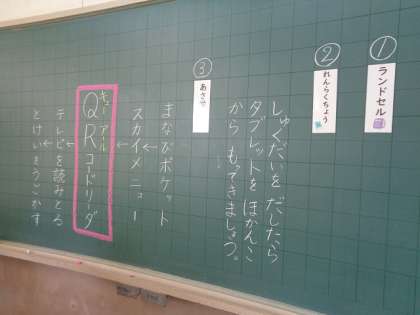 ① ランドセル
② れんらくちょう
③ あさが
しゅくだいを だしたら
タブレットを ほかんこ
から もってきましょう。
まなびポケット
↓
スカイメニュー
↓
キュー アール
QRコードリーダ
↓
テレビを読みとる
↓
とけいをうごかす